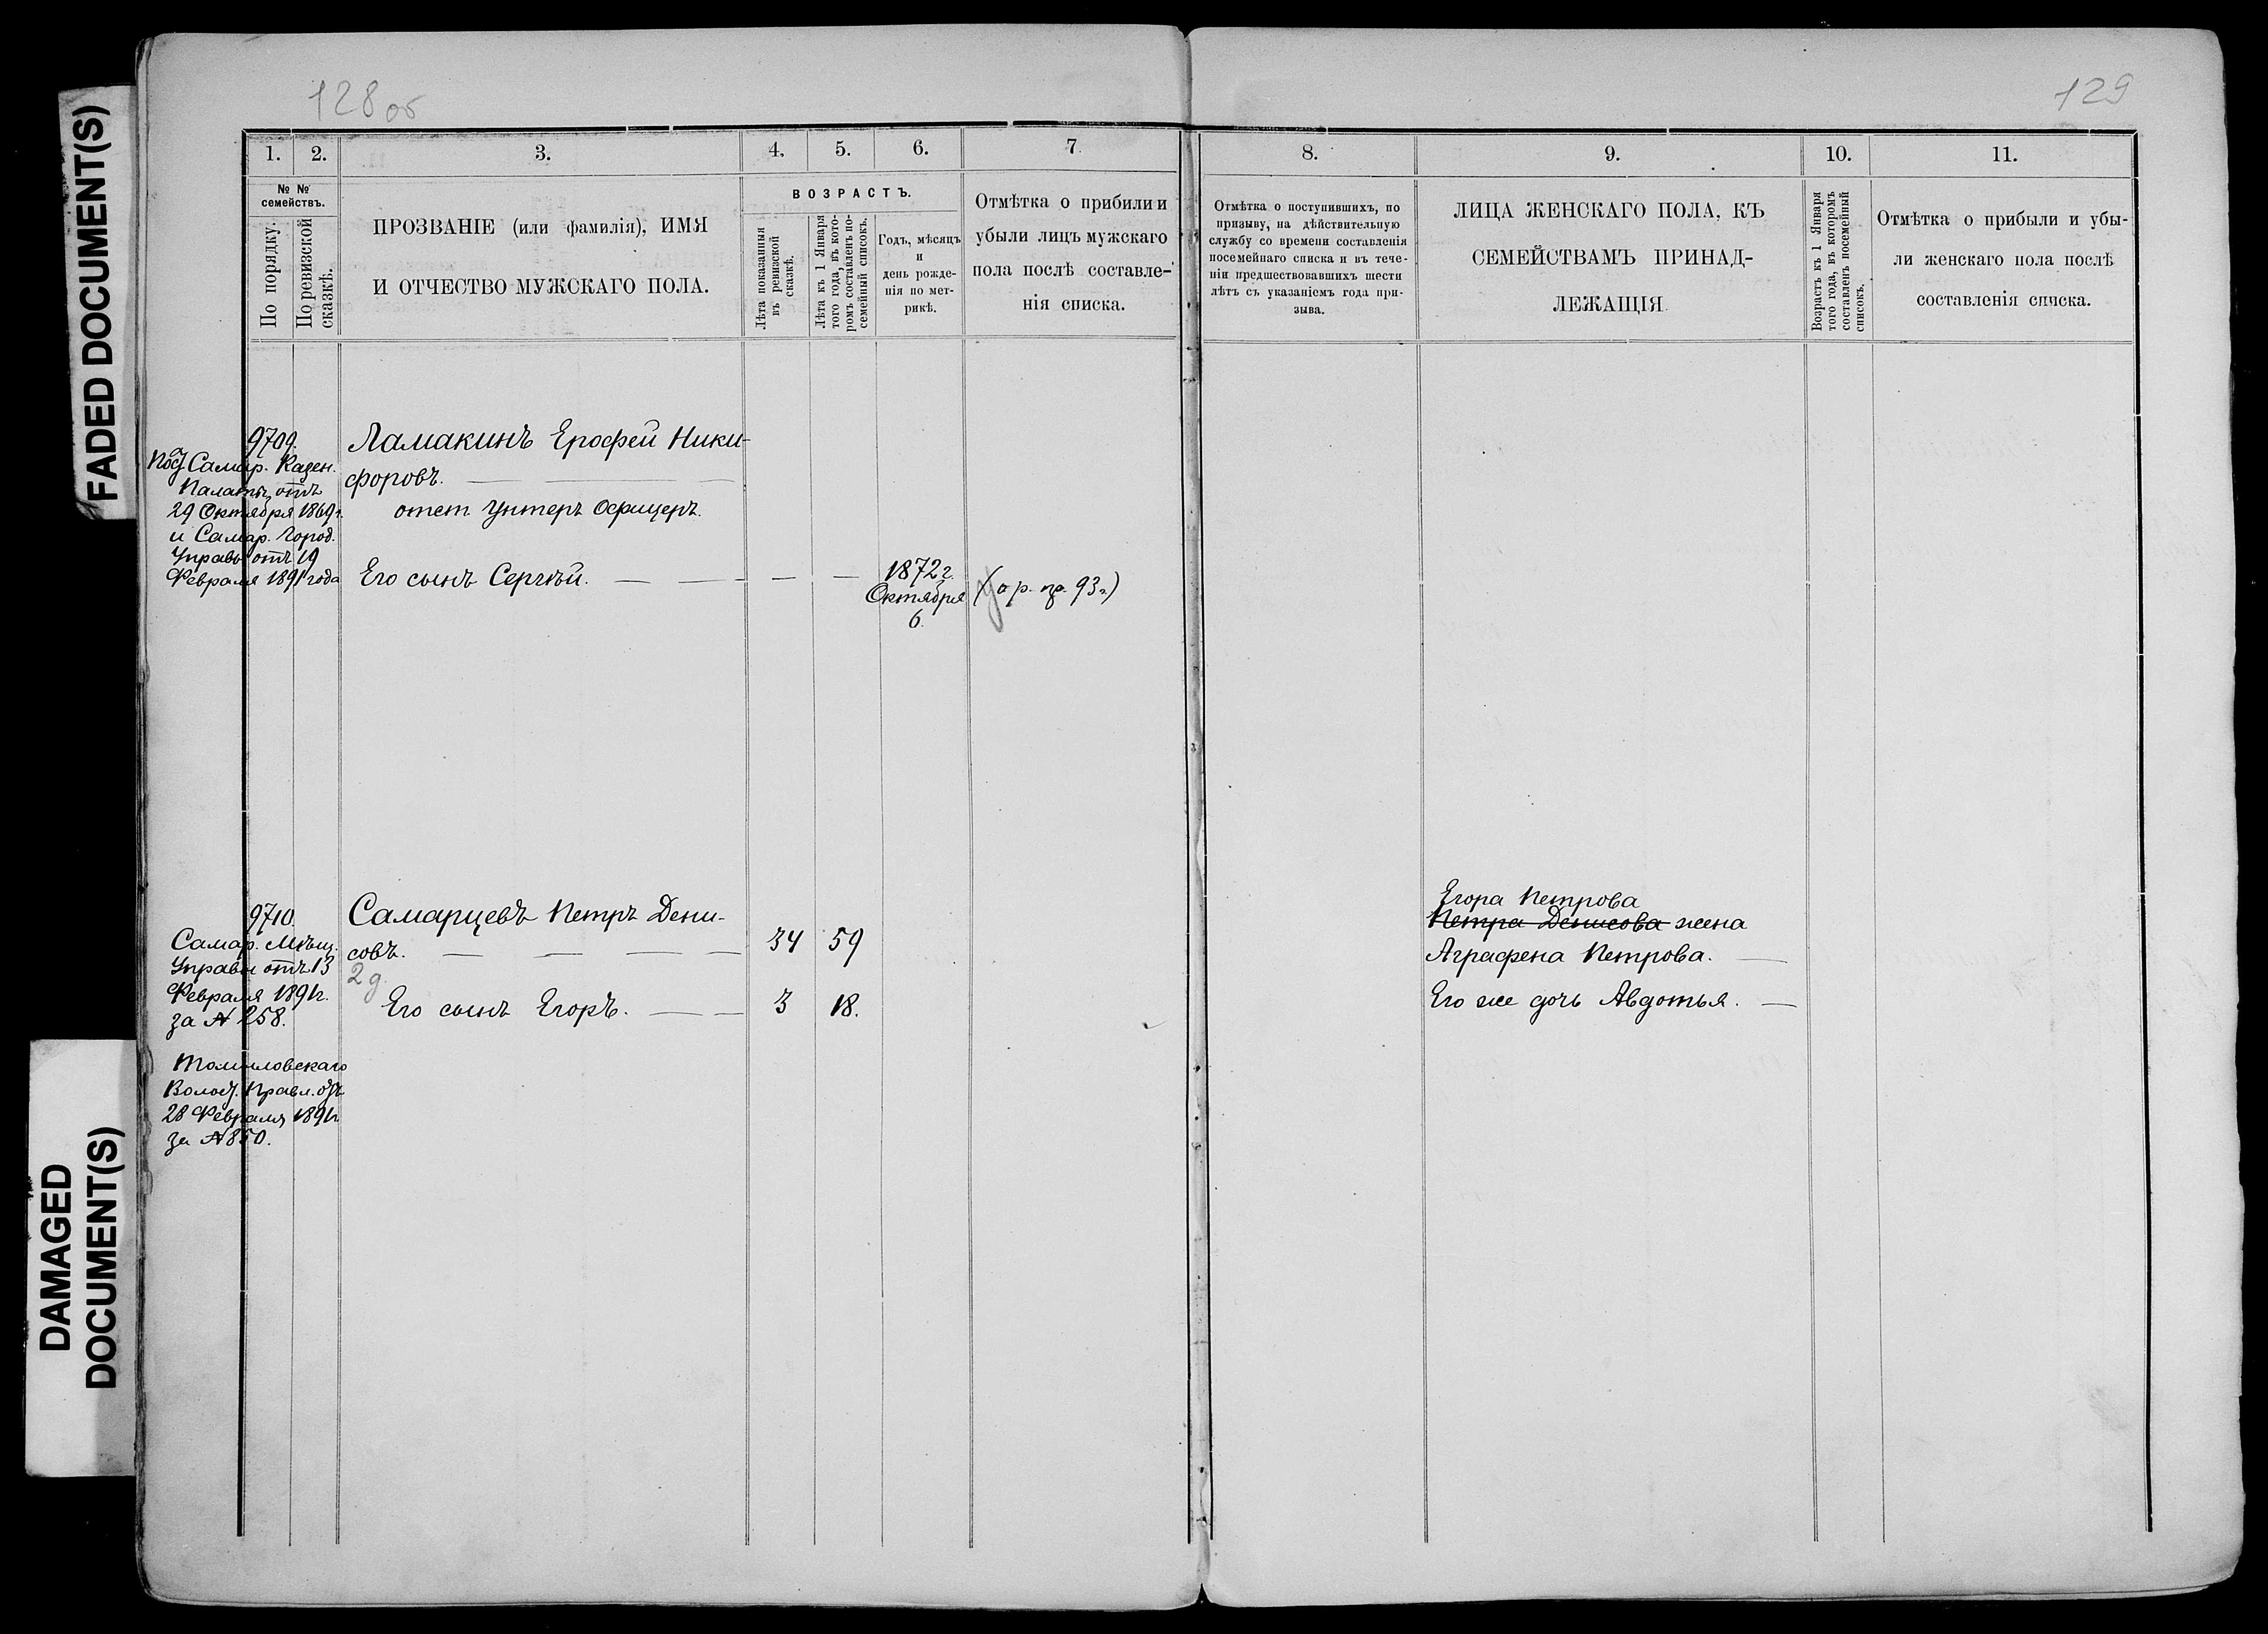 FADED DOCUMENT(S)
DAMAGED
DOCUMENT(S)
128 об
1.
2.
3.
4.
5.
6.
7
№ №
семействъ.
По порядку.
По ревизской
сказкѣ.
ПРОЗВАНІЕ (или фамилія), ИМЯ
И ОТЧЕСТВО МУЖСКАГО ПОЛА.
ВОЗРАСТЪ.
Лѣта показанныя
въ ревизской
сказкѣ.
Лѣта къ 1 Января
того года, въ кото-
ромъ составленъ по-
семейный списокъ.
Годъ, мѣсяцъ
и
день рожде-
нія по мет-
рикѣ.
Отмѣтка о прибили и
убыли лицъ мужскаго
пола послѣ составле-
нія списка.
9709.
Самар. Казен.
Палаты отъ
29 Октября 1869 г.
и Самар. Город.
Управы отъ 19
Февраля 1891 года
Ламакинъ Ерофей Ники-
форовъ.
отст. Унтеръ Офицеръ.
Его сынъ Сергѣй.
1872 г.
Октября
6.
93 г.)
9710.
Самар. Мѣщ.
Управы отъ 13
Февраля 1891 г.
за № 258.
Томиловскаго
Волост. Правл. отъ
28 Февраля 1891 г.
за № 850.
Самарцевъ Петръ Дени-
совъ.
34
59
Его сынъ Егоръ.
3
18.
129
8.
9.
10.
11.
Отмѣтка о поступившихъ, по
призыву, на дѣйствительную
службу со времени составленія
посемейнаго списка и въ тече-
ніи предшествовавшихъ шести
лѣтъ съ указаніемъ года при-
зыва.
ЛИЦА ЖЕНСКАГО ПОЛА, КЪ
СЕМЕЙСТВАМЪ ПРИНАД-
ЛЕЖАЩІЯ.
Возрастъ къ 1 Января
того года, въ которомъ
составленъ посемейный
списокъ.
Отмѣтка о прибыли и убы-
ли женскаго пола послѣ
составленія списка.
Егора Петрова
Петра Денисова жена
Аграфена Петрова.
Его же дочь Авдотья.